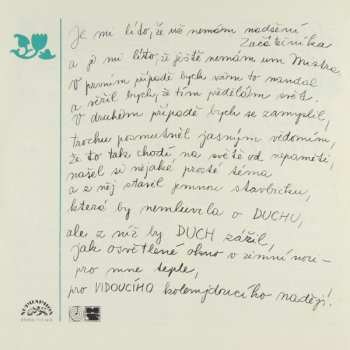 Je mi líto, že už nemám nadšení
Začátečníka
a je mi líto, že ještě nemám um Mistra.
V prvním případě bych vám to mandal
a věřil bych, že tím předělám svět.
V druhém případě bych se zamyslil,
trochu posmutněl jasným vědomím,
že to tak chodí na světě od nepaměti,
našel si nějaké prosté téma
a z něj stavěl jemnou stavbičku,
která by nemluvila o DUCHU,
ale z níž by DUCH zářil,
jak osvětlené okno v zimní noci –
pro mne teplé,
pro VIDOUCÍHO kolemjdoucího naději!
SUPRAPHON